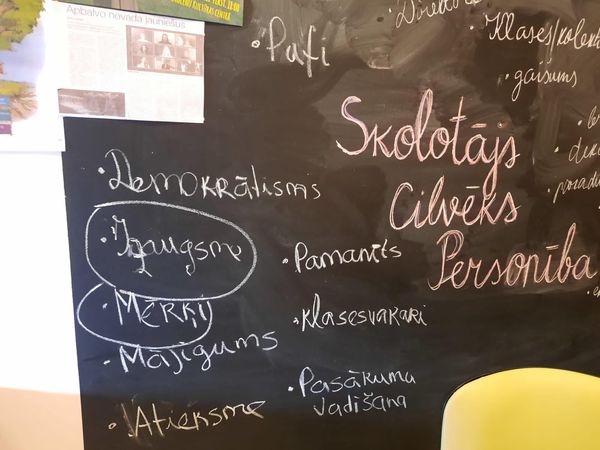 Apbalvo novada jauniešus
• Paši
• Klases/kolekt
• gaisums
Skolotājs
Cilvēks
Personība
• Demokrātisms
• Izaugsme
• Mērķi
• Mājīgums
• Atieksme
• Pamanīts
• Klasesvakari
• Pasākuma
vadīšana